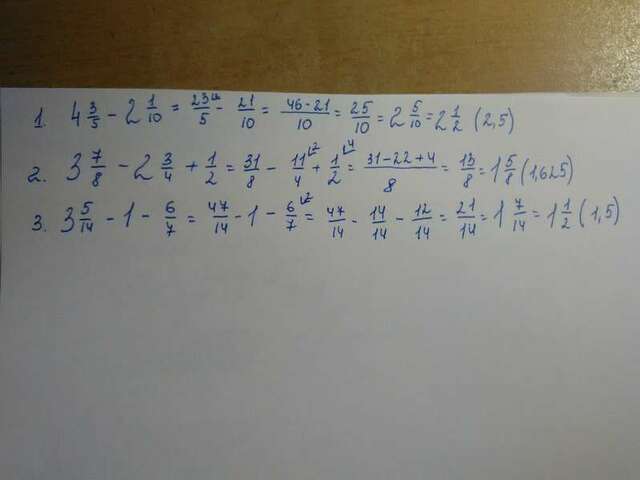 1. 4 3/5 - 2 1/10 = 23/5 ⌊2 - 21/10 = 46-21/10 = 25/10 = 2 5/10 = 2 1/2 (2,5)
2. 3 7/8 - 2 3/4 + 1/2 = 31/8 - 11/4 ⌊2 + 1/2 ⌊4 = 31-22+4/8 = 13/8 = 1 5/8 (1,625)
3. 3 5/14 - 1 - 6/7 = 47/14 - 1 - 6/7 ⌊2 = 47/14 - 14/14 - 12/14 = 21/14 = 1 7/14 = 1 1/2 (1,5)